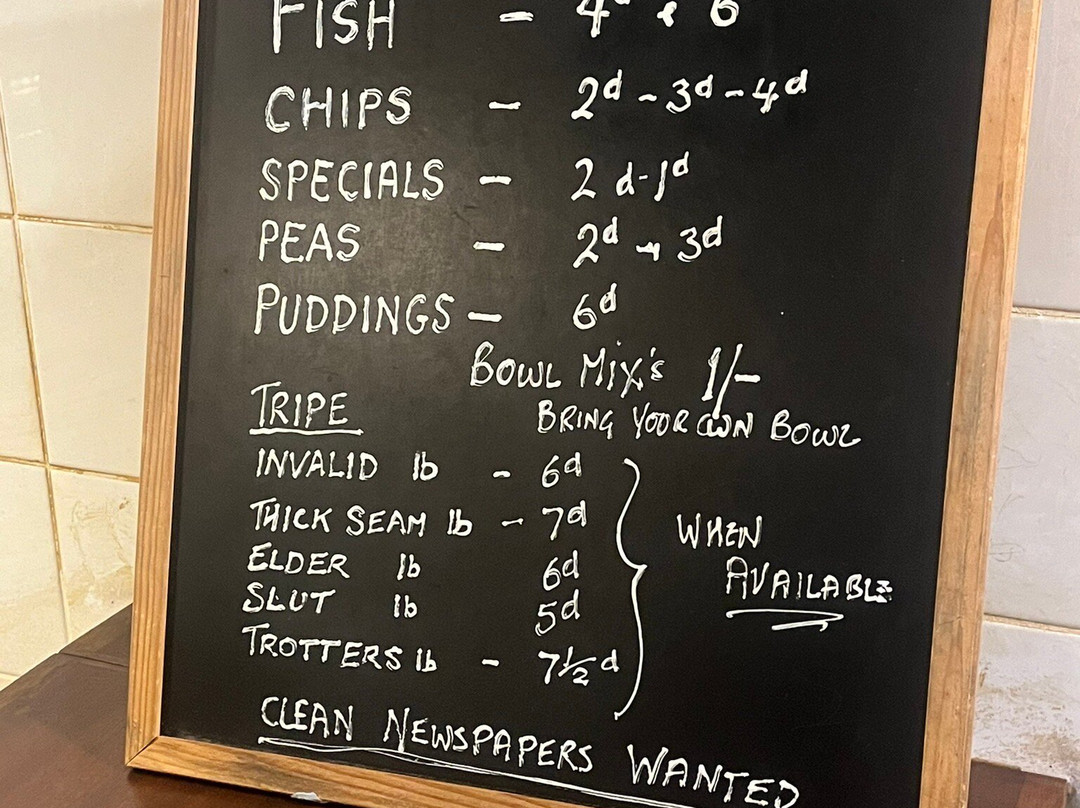 FISH - 4d & 6
CHIPS - 2d - 3d - 4d
SPECIALS - 2 d - 1d
PEAS - 2d - 3d
PUDDINGS - 6d
BOWL MIX's 1/-
BRING YOUR OWN BOWL
TRIPE
INVALID lb - 6d
THICK SEAM lb - 7d
ELDER lb 6d
SLUT lb 5d
TROTTERS lb - 7½d
WHEN
AVAILABLE
CLEAN NEWSPAPERS WANTED